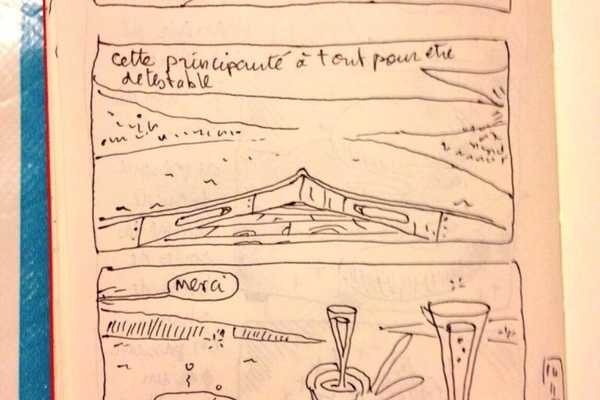 cette principauté à tout pour être
detestable
merci